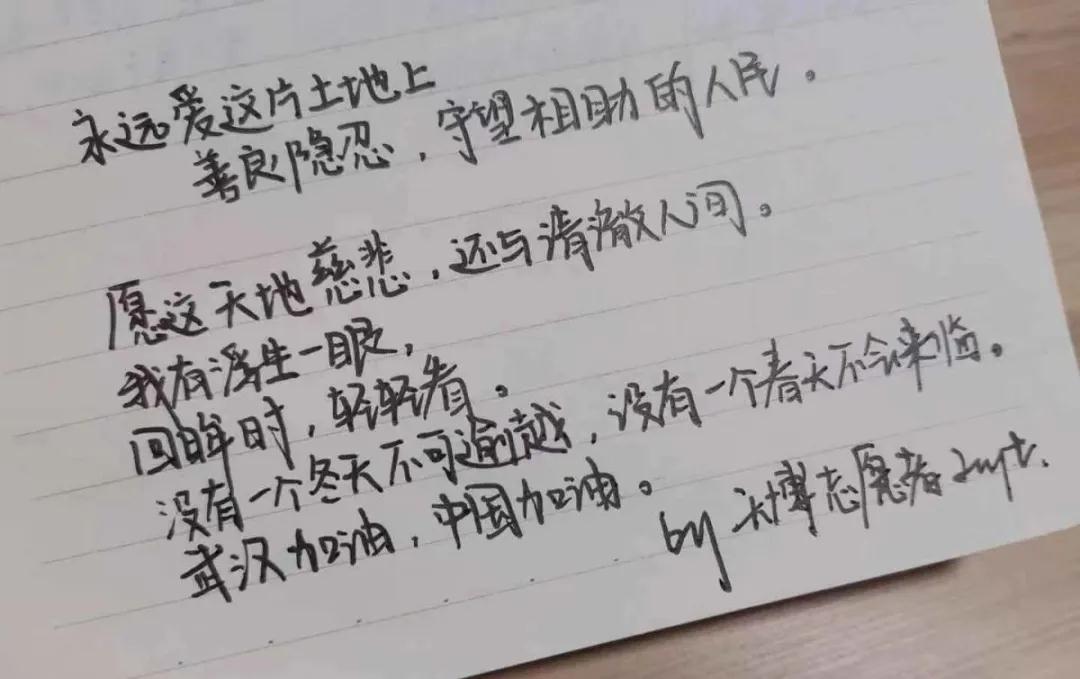 永远爱这片土地上
善良隐忍，守望相助的人民。
愿这天地慈悲，还与清澈人间。
我有浮生一眼，
回眸时，轻轻看。
没有一个冬天不可逾越，没有一个春天不会来临。
武汉加油，中国加油。
by 志愿者